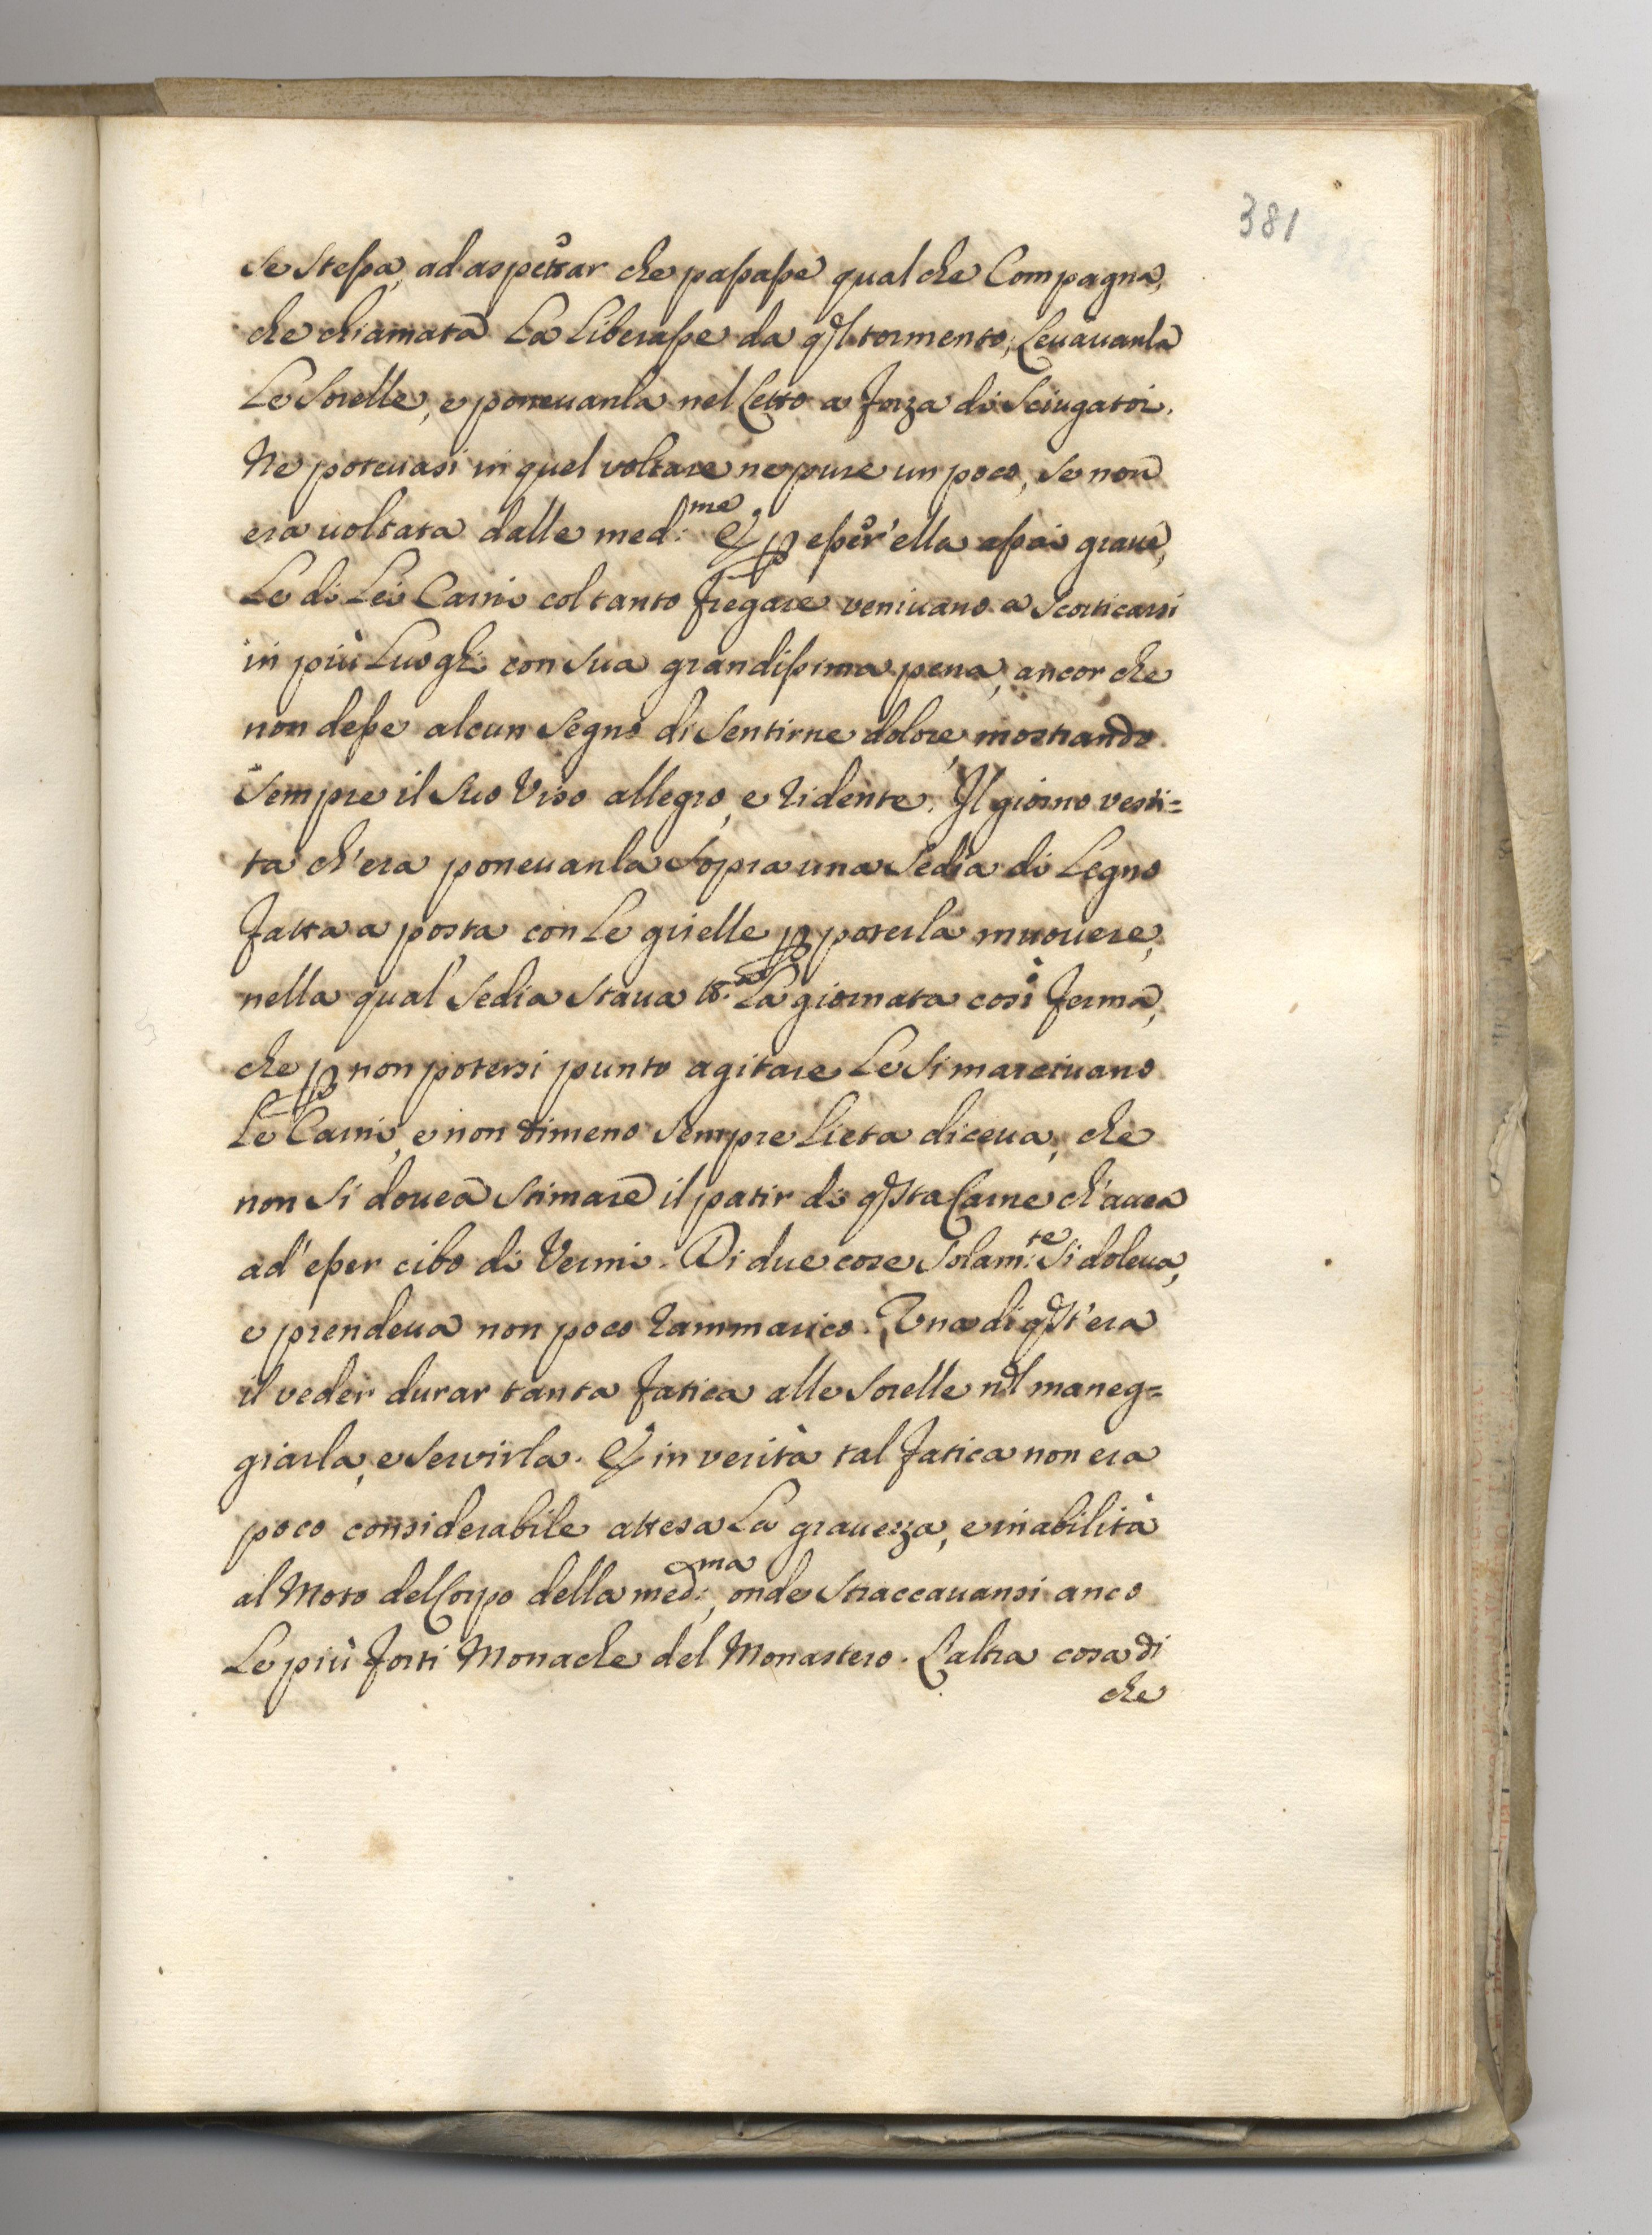 381
se stessa, ad aspettar che passasse qual che Compagna,
che chiamata La Liberasse da qsto tormento; Levavanla
Le Sorelle, e ponevanla nel Letto a forza di Sciugatoi.
Ne potevasi in quel voltare ne pure un poco, se non
era voltata dalle med:me E p esser' ella assai grave,
Le di Lei Carni col tanto fregare venivano a Scorticarsi
in più Luoghi con sua grandissima pena, ancor che
non desse alcun Segno di Sentirne dolore, mostrando
Sempre il Suo Viso allegro, e ridente. Il giorno vesti=
ta ch'era ponevanla Sopra una Sedia di Legno
fatta a posta con Le girelle p poterla muovere,
nella qual Sedia Stava tt.a La giornata così ferma,
che p non potersi punto agitare Le Si marcivano
Le Carni, e non dimeno Sempre Lieta diceva, che
non Si dovea Stimare il patir di qsta Carne ch'avea
ad' esser cibo di Vermi. Di due cose Solam:te Si doleva,
e prendeva non poco rammarico. Una di qst'era
il veder durar tanta fatica alle Sorelle nel maneg=
giarla, e Servirla. E in verità tal fatica non era
poco considerabile attesa La gravezza, e inabilità
al Moto del Corpo della med:ma, onde Straccavansi anco
Le più forti Monache del Monastero. L'altra cosa di
che